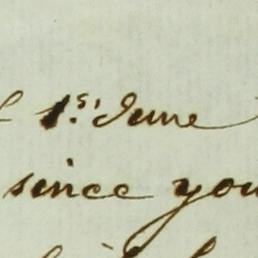 1st June
since you